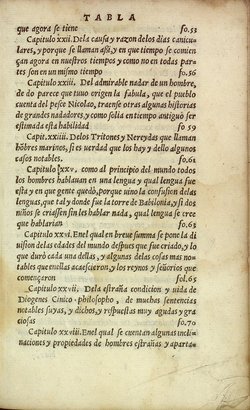 TABLA
que agora se tiene fo.53
Capitulo xxii. Dela causa y razon delos dias canicu-
lares, y porque se llaman assi, y en que tiempo se comien
çan agora en nuestros tiempos y como no en todas par
tes son en un mismo tiempo fo.56
Capitulo xxiii. Del admirable nadar de un hombre,
de do parece que tuuo origen la fabula, que el pueblo
cuenta del pesce Nicolao, traense otras algunas historias
de grandes nadadores, y como solia en tiempo antiguo ser
estimada esta habilidad fo.59
Cap. xxiiii. Delos Tritones y Nereydas que llaman
hõbres marinos, si es verdad que los hay y dello algunos
casos notables. fo.61
Capitulo xxv, como al principio del mundo todos
los hombres hablauan en una lengua y qual lengua fue
esta y en que gente quedó, porque uino la confusion delas
lenguas, que tal y donde fue la torre de Babilonia, y si dos
niños se criassen sin les hablar nada, qual lengua se cree
que hablarian fo.63
Capitulo xxvi. Enel qual en breue summa se pone la di
uision delas edades del mundo despues que fue criado, y lo
que duró cada una dellas, y algunas delas cosas mas no-
tables que enellas acaescieron, y los reynos y señorios que
començaron fol.65
Capitulo xxvii. Dela estraña condicion y uida de
Diogenes Cinico philosopho, de muchas sentencias
notables suyas, y dichos, y respuestas muy agudas y gra
ciosas fo.70
Capitulo xxviii. Enel qual se cuentan algunas incli-
naciones y propiedades de hombres estrañas y aparta-